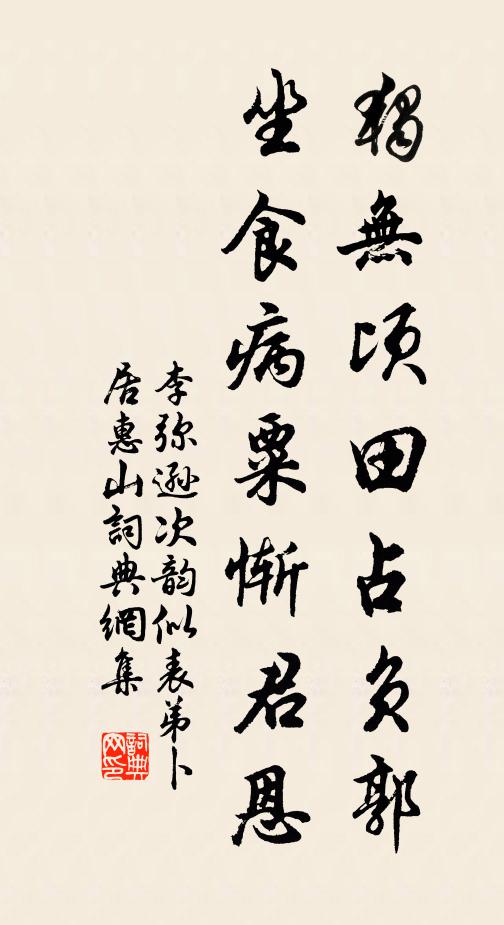 獨無頃田占負郭
坐食病粟慚君恩
李弥遜次韵似表弟卜
居惠山詞典網集
詞典网印